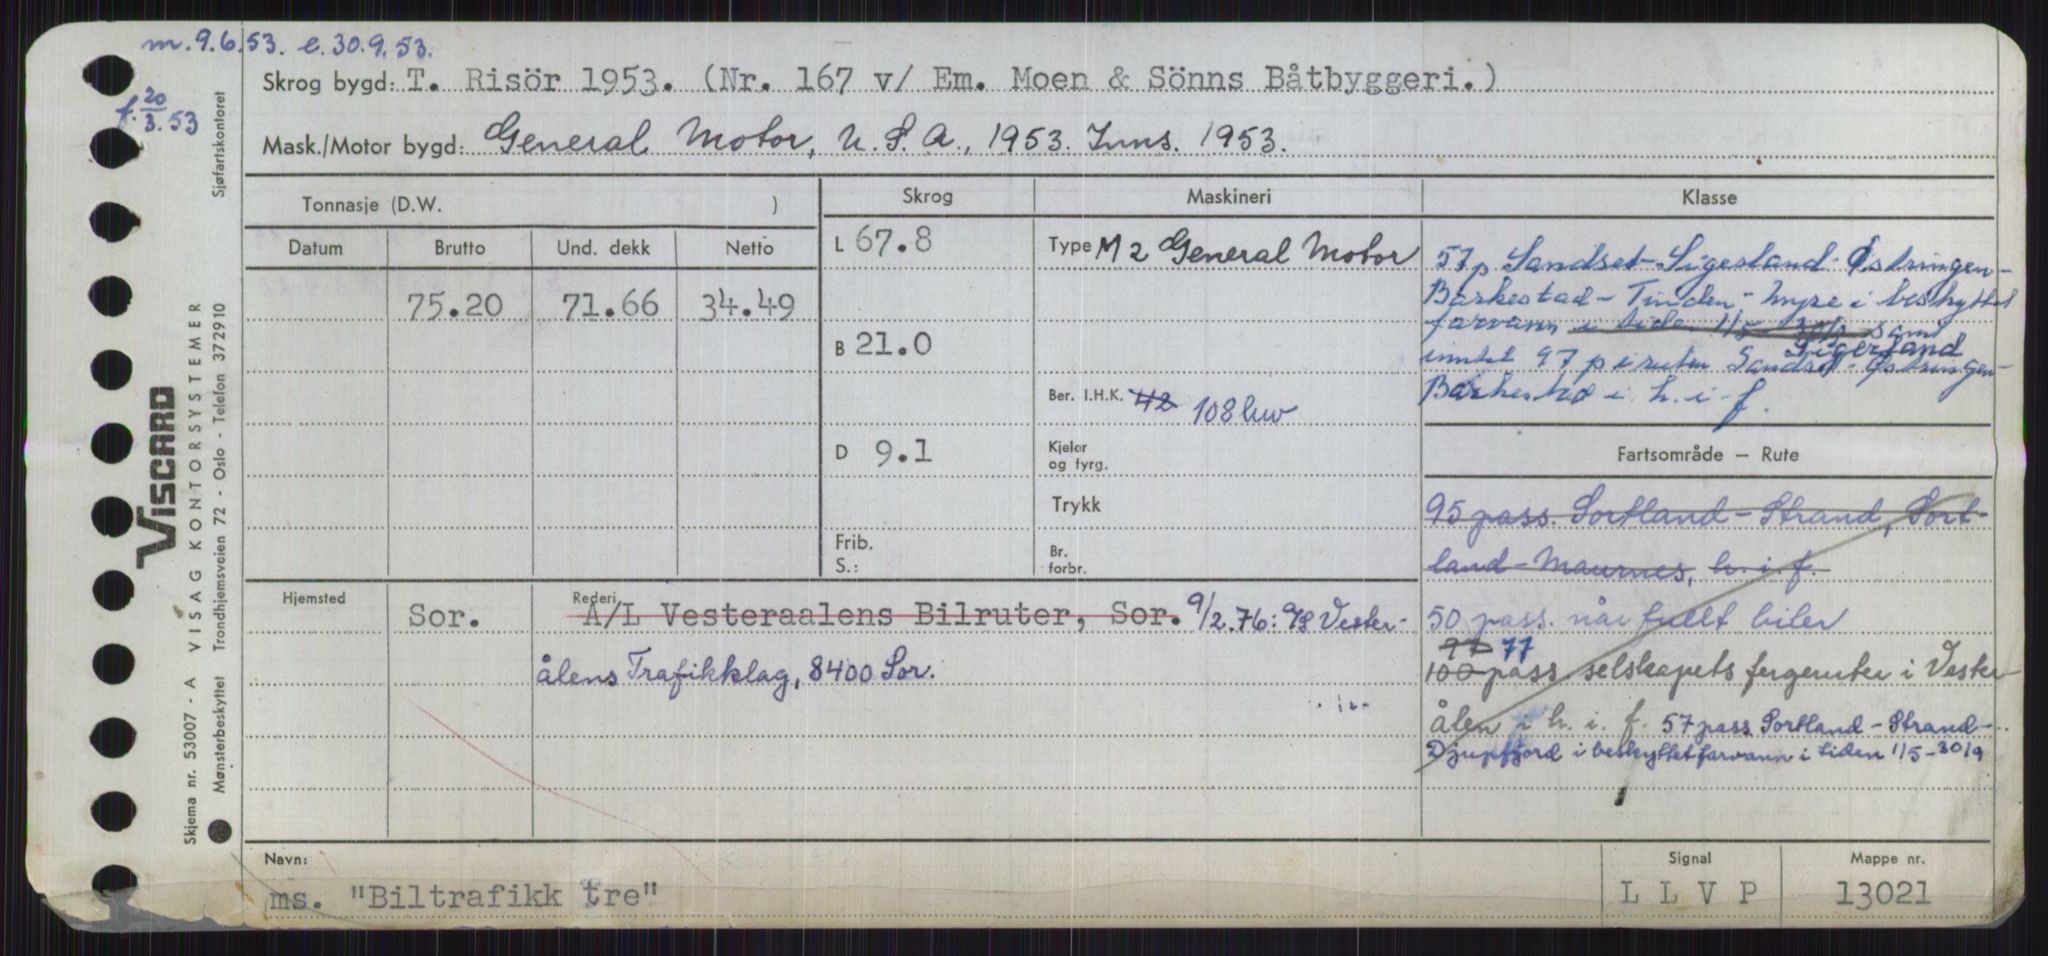 m. 9.6.53. e. 30.9.53.
f. 20/3.53
Skrog bygd: T. Risör 1953. (Nr. 167 v/ Em. Moen & Sönns Båtbyggeri.)
Mask./Motor bygd: General Motor, U.S.A., 1953. Inns. 1953.
Tonnasje (D.W. )
Datum Brutto Und. dekk Netto
75.20 71.66 34.49
Skrog
L 67.8
B 21.0
D 9.1
Frib.
S.:
Maskineri
Type M 2 General Motor
Ber. I.H.K. 42 108 hw
Kjeler
og fyrg.
Trykk
Br.
forbr.
Klasse
57 p Sandset-Sigesland-Østringen-
Barkestad - Tinden - Myre i beskyttet
farvann i tiden 1/5 - 30/9 samt
Sigersland
inntil 97 p i ruten Sandset - Østringen-
Barkestad i h. i. f.
Fartsområde — Rute
95 pass. Sortland - Strand, Sort-
land - Maurnes, h. i. f.
50 pass. når fullt biler
97 77
100 pass. selskapets fergeruter i Vester-
ålen i h. i. f. 57 pass Sortland - Strand -
Djupfjord i beskyttet farvann i tiden 1/5 - 30/9
Hjemsted Sor.
Rederi
A/L Vesteraalens Bilruter, Sor. 9/2.76: A/S Vester-
ålens Trafikklag, 8400 Sor.
Navn:
ms. "Biltrafikk tre"
Signal
L L V P
Mappe nr.
13021
VISCARD
Skjema nr. 53007 - A VISAG KONTORSYSTEMER
Mønsterbeskyttet Trondhjemsveien 72 - Oslo - Telefon 372910 Sjøfartskontoret